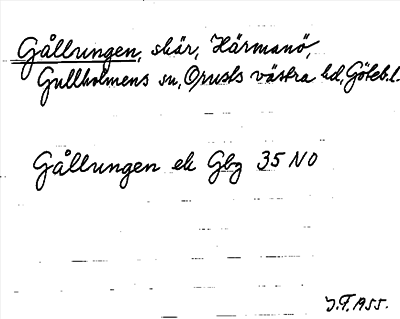 Gållungen, skär, Härmanö,
Gullholmens sn, Orusts västra hd, Göteb. l.
Gållungen ek Gbg 35 NO
J.F. 1955.